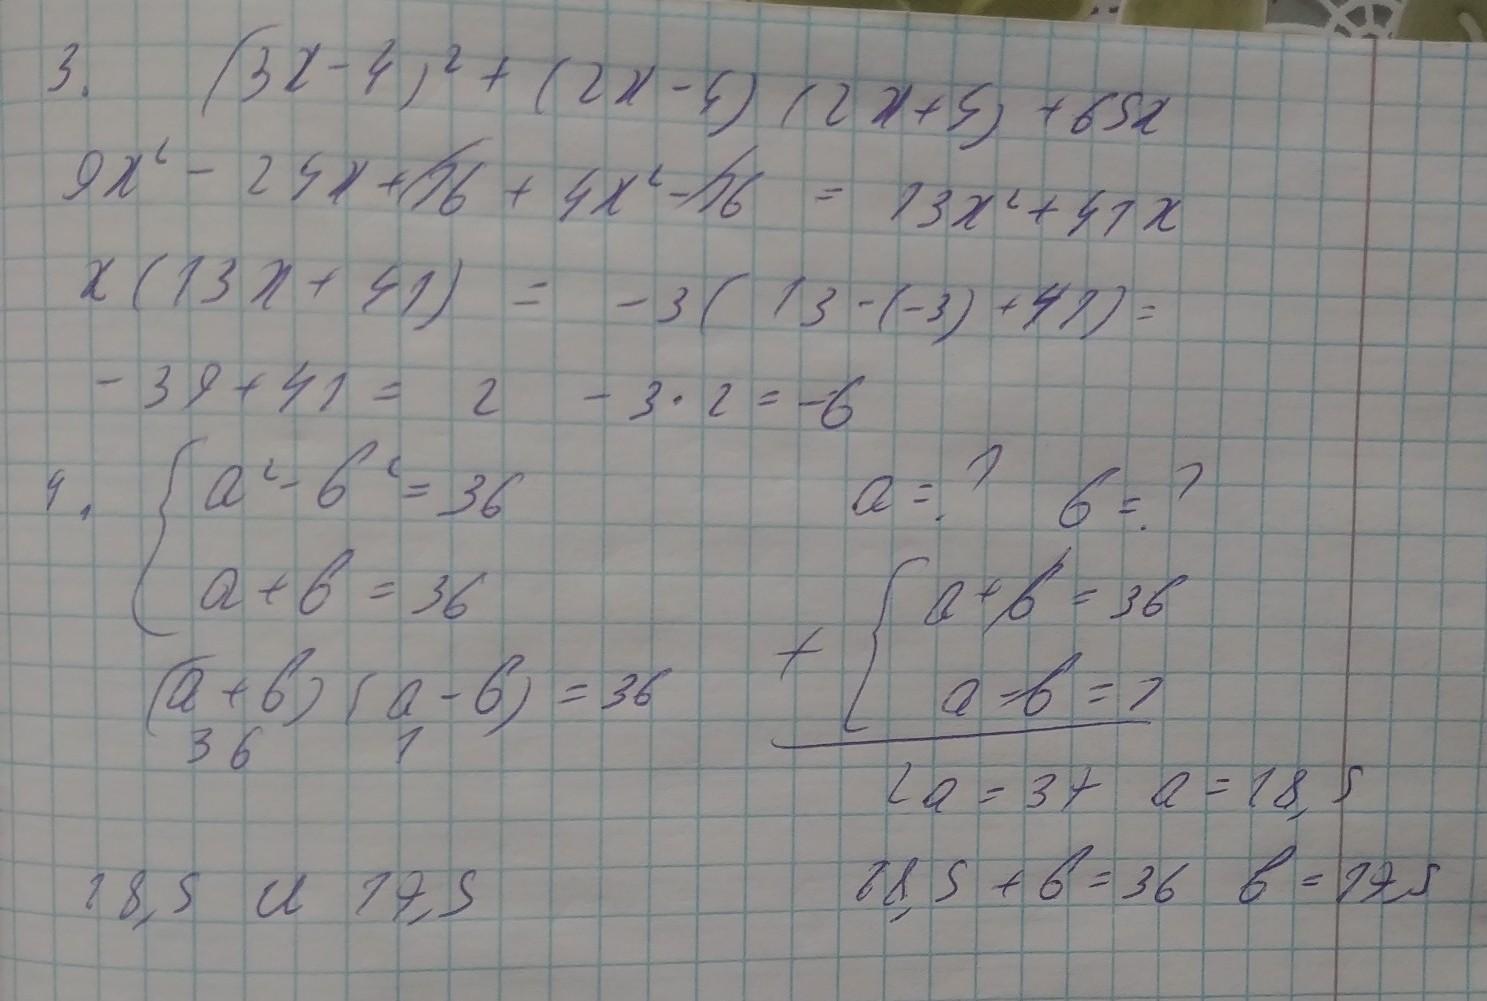 3. (3x-4)² + (2x-4) (2x+4) + 65x
9x² - 24x + 16 + 4x² - 16 = 13x² + 41x
x(13x + 41) = -3( 13 · (-3) + 41) =
- 39 + 41 = 2 - 3 · 2 = -6
4. { a² - b² = 36 a = ? b = ?
a + b = 36 + { a + b = 36
(a + b) (a - b) = 36 a - b = 1
36 1
2a = 37 a = 18,5
18,5 и 17,5 18,5 + b = 36 b = 17,5